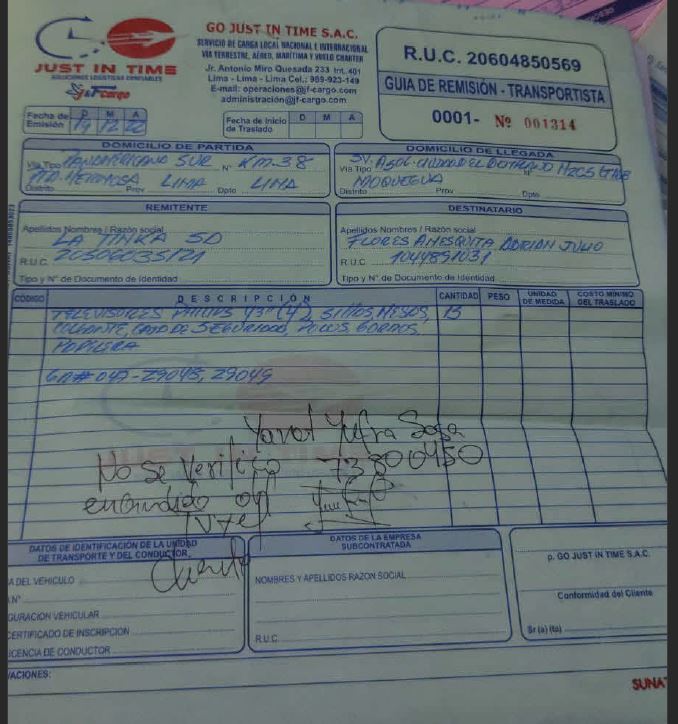 JUST IN TIME
SOLUCIONES LOGISTICAS CONFIABLES
J&F cargo
GO JUST IN TIME S.A.C.
SERVICIO DE CARGA LOCAL NACIONAL E INTERNACIONAL
VIA TERRESTRE, AÉREO, MARÍTIMA Y VUELO CHARTER
Jr. Antonio Miro Quesada 233 Int. 401
Lima - Lima - Lima Cel.: 989-923-149
E-mail: operaciones@jf-cargo.com
administración@jf-cargo.com
R.U.C. 20604850569
GUIA DE REMISIÓN - TRANSPORTISTA
0001- Nº 001314
Fecha de Emisión D M A
14 12 22
Fecha de Inicio de Traslado D M A
DOMICILIO DE PARTIDA
Via Tipo PANAMERICANA SUR Nº KM. 38
PTA. HERMOSA LIMA LIMA
Distrito Prov Dpto
DOMICILIO DE LLEGADA
Via Tipo
MOQUEGUA
Distrito Prov. Dpto.
REMITENTE
Apellidos Nombres / Razón social
LA TINKA SA
R.U.C. 20506035121
Tipo y N° de Documento de Identidad
DESTINATARIO
Apellidos Nombres / Razón social
FLORES AMESQUITA ADRIAN JULIO
R.U.C. 1044891031
Tipo y N° de Documento de Identidad
CÓDIGO DESCRIPCIÓN CANTIDAD PESO UNIDAD DE MEDIDA COSTO MINIMO DEL TRASLADO
TELEVISORES PHILIPS 43" (4), SILLAS, MESAS, 13
COLGANTE, CAJA DE SEGURIDAD, POLOS, GORROS,
PAPELERA
GR# 047-29048, 29049
Yufra Sosa
No Se Verifico 73800450
encendido
Tv
DATOS DE IDENTIFICACIÓN DE LA UNIDAD
DE TRANSPORTE Y DEL CONDUCTOR
A DEL VEHICULO
N°
GURACIÓN VEHICULAR
CERTIFICADO DE INSCRIPCION
ICENCIA DE CONDUCTOR
DATOS DE LA EMPRESA
SUBCONTRATADA
NOMBRES Y APELLIDOS RAZON SOCIAL
R.U.C.
p. GO JUST IN TIME S.A.C.
Conformidad del Cliente
Sr (a) (ta)
VACIONES:
SUNAT